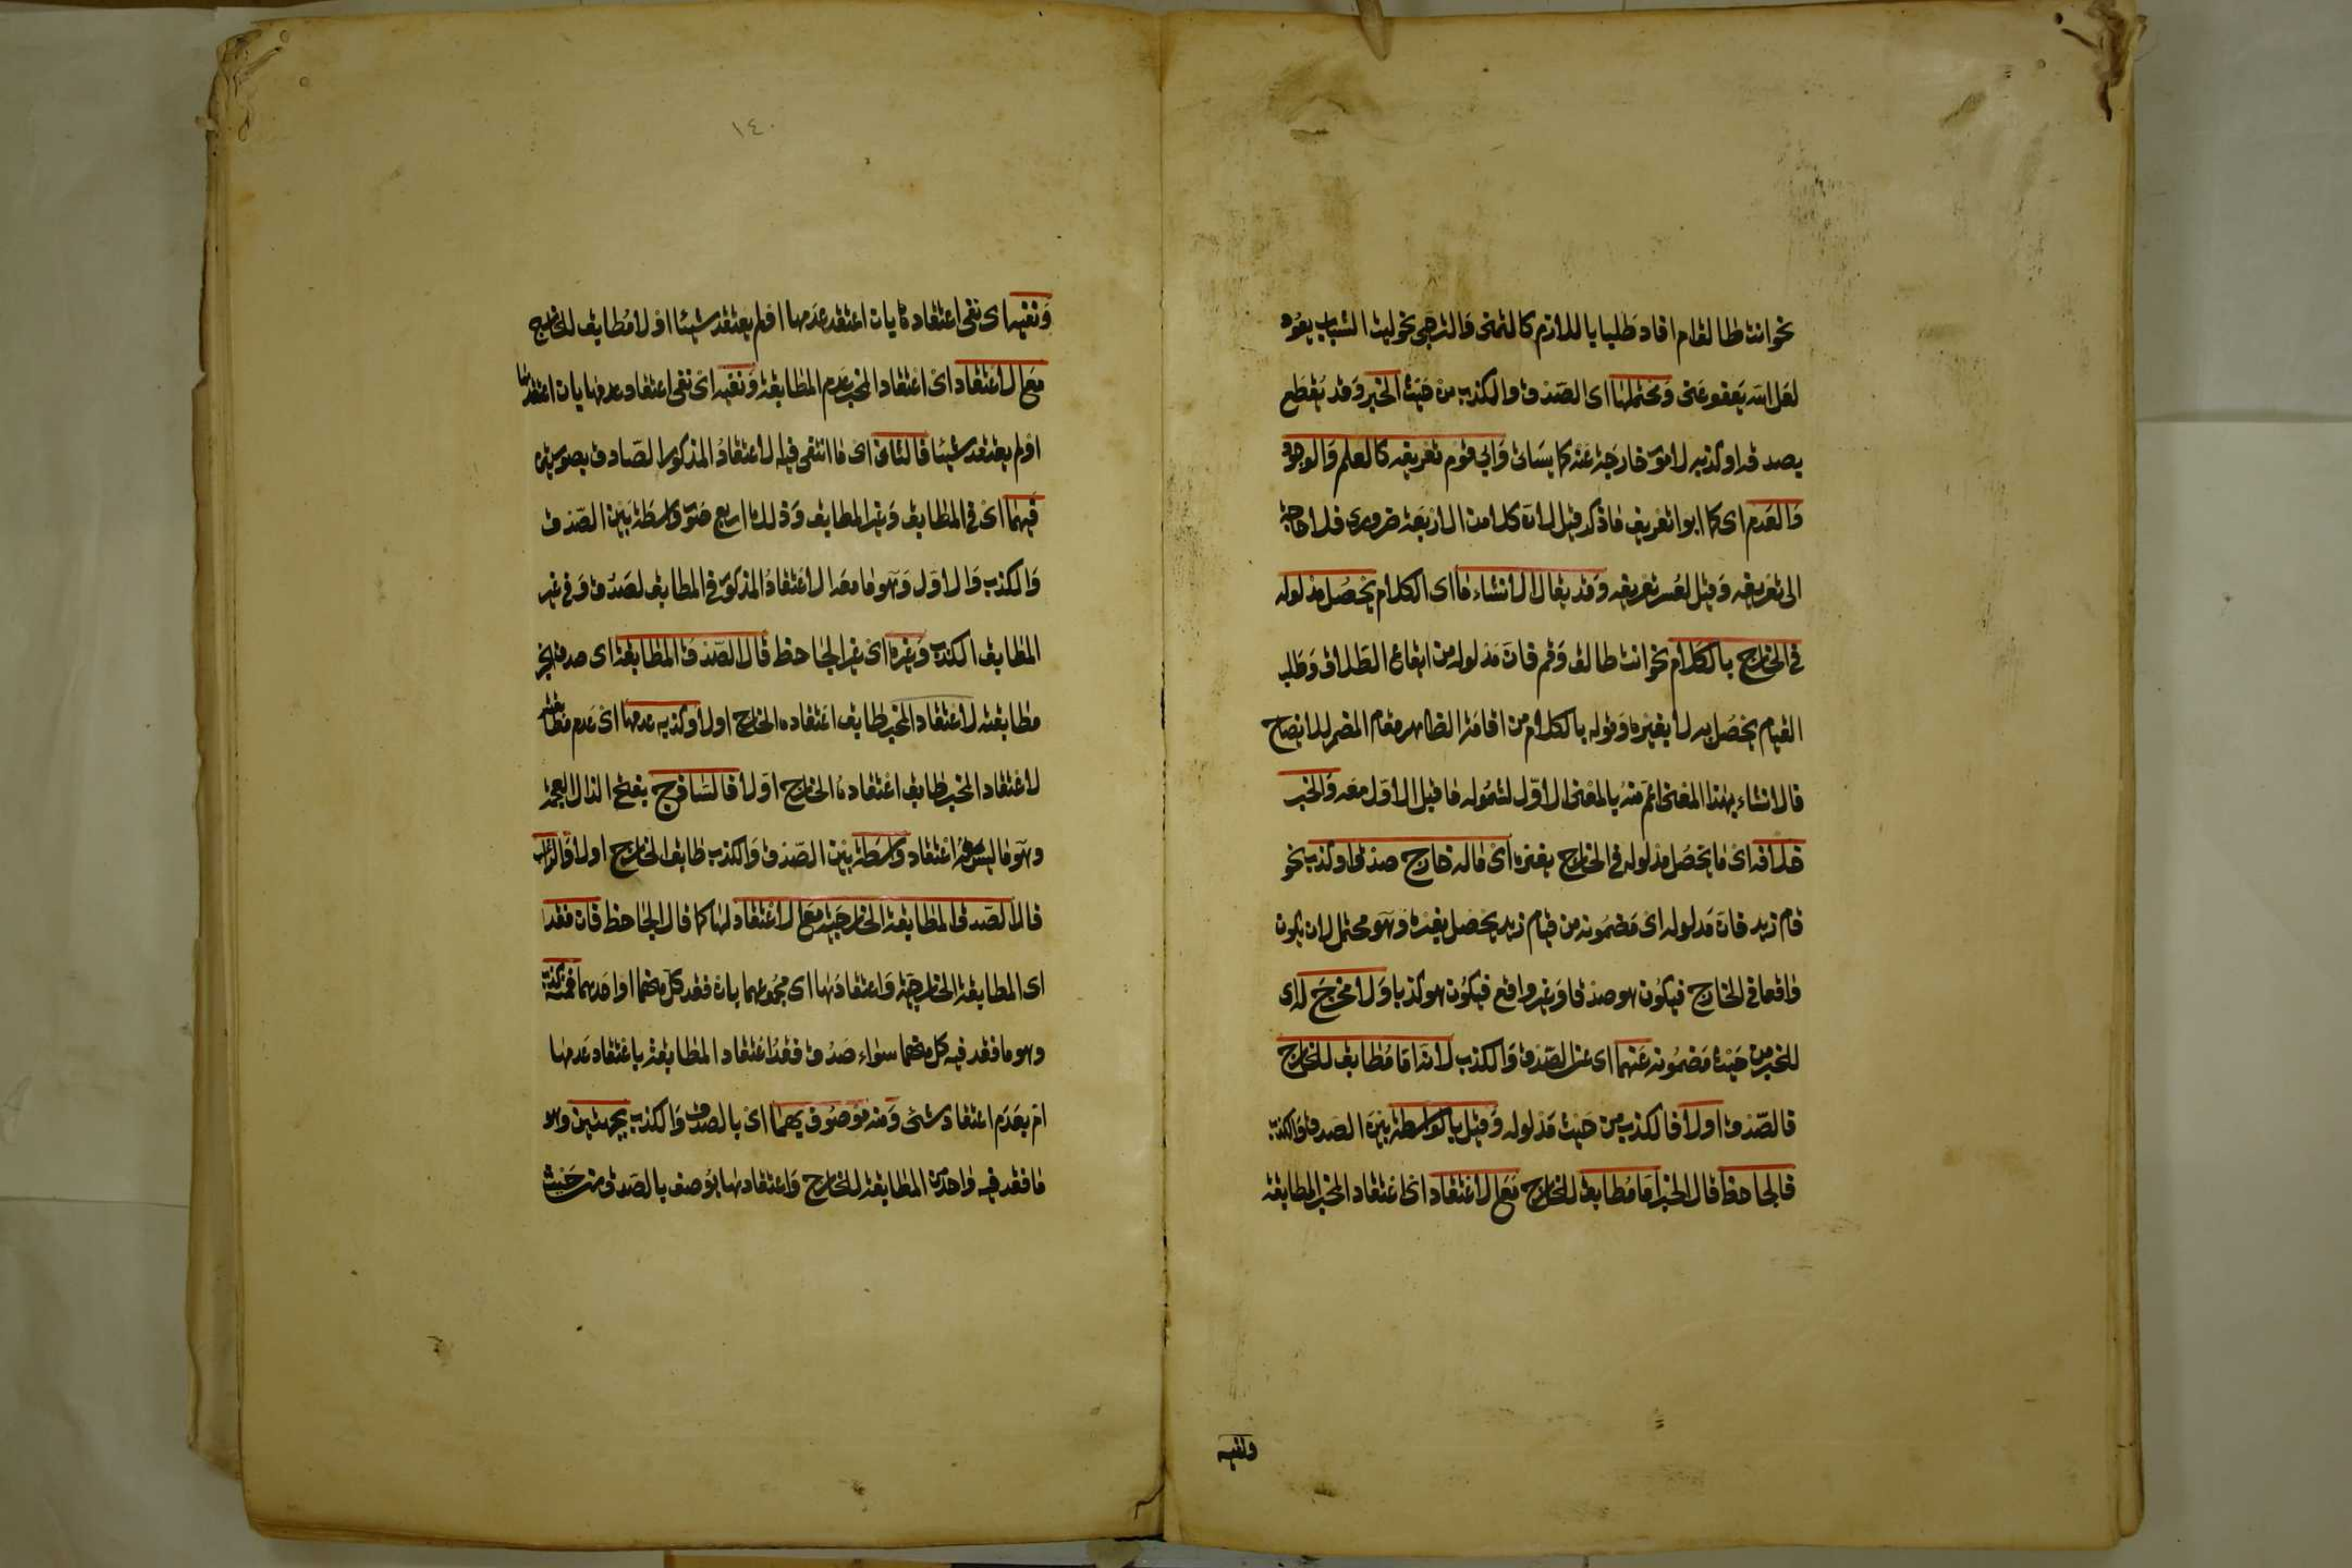 نحو انت طالق ام افاد طلبا باللازم كالتمنى والترجى نحو ليت الشباب يعود
لعل الله يعفو عنى ومحتملها اى الصدق والكذب من حيث الخبر وقد يقطع
بصدقه او كذبه لامور خارجة عنه كما يساتى وابى قوم تعريفه كالعلم والوجود
والعدم اى كما ابوا تعريف ما ذكر قيل لان كلا من الاربعة ضرورى فلا حاجة
الى تعريفه وقيل لعسر تعريفه وقد يقال الانشاء ما اى الكلام يحصل مدلوله
فى الخارج بالكلام نحو انت طالق وقم فان مدلوله من ايقاع الطلاق وطلب
القيام يحصل به لا بغيره وقوله بالكلام من اقامة الظاهر مقام المضمر للايضاح
فالانشاء بهذا المعنى اعم منه بالمعنى الاول لشموله ما قبل الاول معه والخبر
خلافه اى ما يحصل مدلوله فى الخارج بغيره اى ما له خارج صدق او كذب نحو
قام زيد فان مدلوله اى مضمونه من قيام زيد يحصل بغيره وهو محتمل لان يكون
واقعا فى الخارج فيكون هو صدقا وغير واقع فيكون هو كذبا ولا مخرج له اى
للخبر من حيث مضمونه عنهما اى عن الصدق والكذب لانه اما مطابق للخارج
فالصدق او لا فالكذب من حيث مدلوله وقيل بالواسطة بين الصدق والكذب
فالجاحظ قال الخبر اما مطابق للخارج مع الاعتقاد اى اعتقاد المخبر المطابقة
ونفيه
١٤٠
ونفيه اى نفى اعتقاده بان اعتقد عدمها او لم يعتقد شيئا او لا مطابق للخارج
مع الاعتقاد اى اعتقاد المخبر عدم المطابقة ونفيه اى نفى اعتقاد عدمها بان اعتقدها
او لم يعتقد شيئا فالثانى اى ما انتفى فيه الاعتقاد المذكور الصادق بصورتين
فيهما اى فى المطابق وغير المطابق وذلك اربع صور واسطة بين الصدق
والكذب والاول وهو ما معه الاعتقاد المذكور فى المطابق الصدق وفى غير
المطابق الكذب وغيره اى غير الجاحظ قال الصدق المطابقة اى صدق الخبر
مطابقته لاعتقاد المخبر طابق اعتقاده الخارج او لا وكذبه عدمها اى عدم مطابقته
لاعتقاد المخبر طابق اعتقاده الخارج او لا فالساذج بفتح الذال المعجمة
وهو ما ليس معه اعتقاد واسطة بين الصدق والكذب طابق الخارج او لا والراغب
قال الصدق المطابقة الخارجية مع الاعتقاد لها كما قال الجاحظ فان فقدا
اى المطابقة الخارجية واعتقادها اى مجموعهما بان فقد كل منهما او احدهما فمنه كذب
وهو ما فقد فيه كل منهما سواء صدق فقد اعتقاد المطابقة باعتقاد عدمها
ام بعدم اعتقاد شئ ومنه موصوف بهما اى بالصدق والكذب بجهتين وهو
ما فقد فيه واحد من المطابقة للخارج واعتقادها يوصف بالصدق من حيث